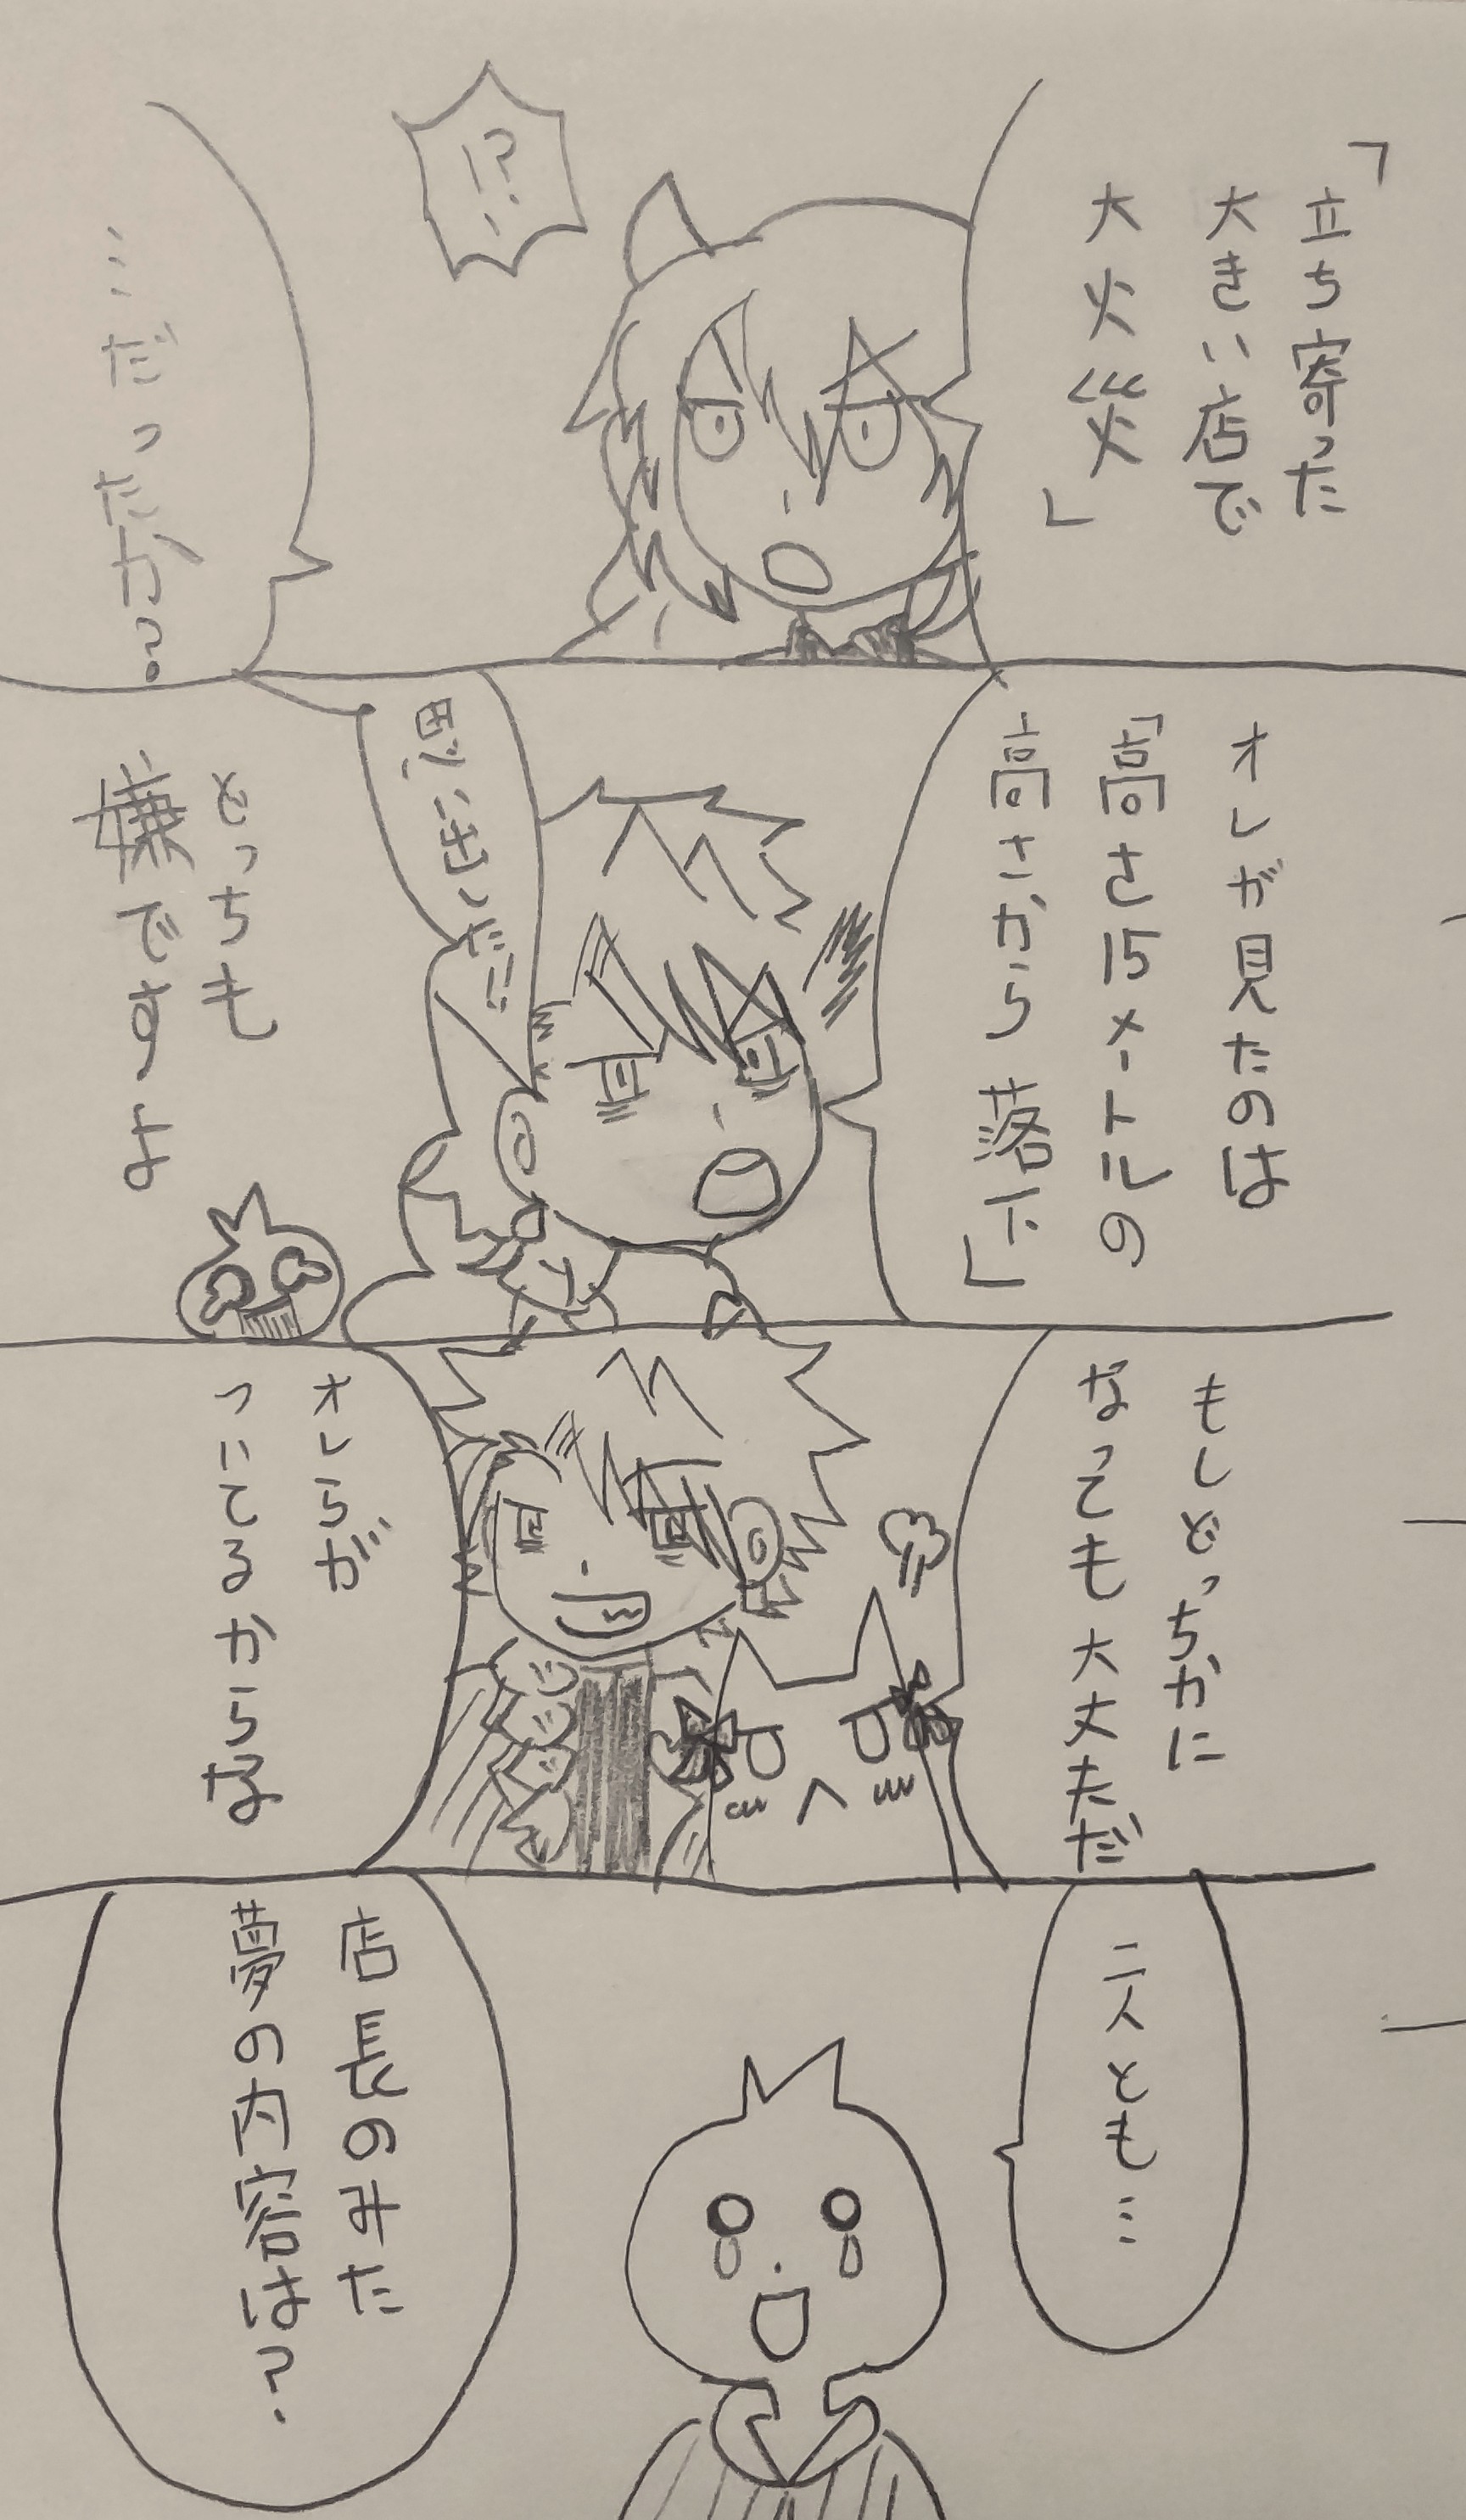 「立ち寄った
大きい店で
大火災」
!?
…だったか?
オレが見たのは
「高さ15メートルの
高さから落下」
思い出しやがった
どっちも
嫌ですよ
もしどっちかに
なっても大丈夫だ
オレらが
ついてるからな
二人とも…
店長のみた
夢の内容は?